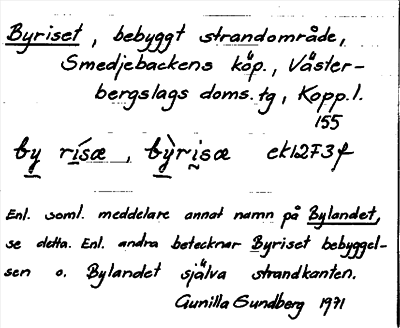 Byriset, bebyggt strandområde,
Smedjebackens köp., Väster-
bergslags doms.tg, Kopp.l.
155
by rísæ, bỳrisæ ek1273f
Enl. soml. meddelare annat namn på Bylandet,
se detta. Enl. andra betecknar Byriset bebyggel-
sen o. Bylandet själva strandkanten.
Gunilla Sundberg 1971